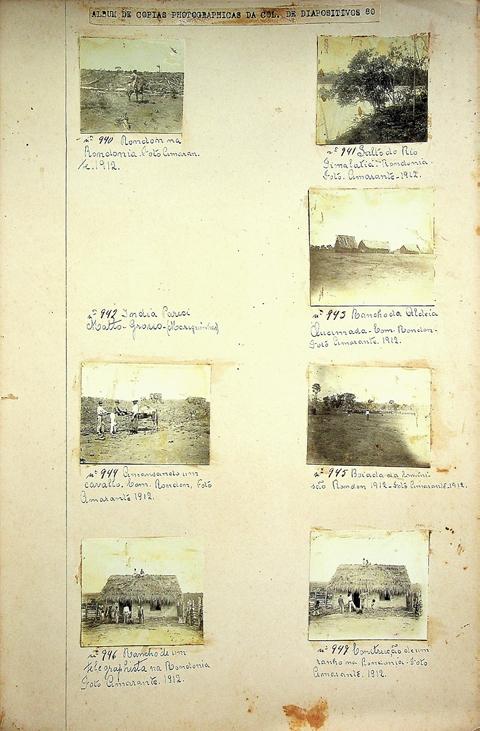 ALBUM DE COPIAS PHOTOGRAPHICAS DA COL. DE DIAPOSITIVOS 80
nº 940 Rondon na
Rondonia. Foto Amaran-
te. 1912.
nº 941 Salto do Rio
Rondonia.
Foto. Amarante. 1912.
nº 942 India Pareci
Matto-Grosso
nº 943 Rancho da Aldeia
Queimada. Com. Rondon.
Foto Amarante. 1912.
nº 944 Amansando um
cavallo. Com. Rondon, Foto
Amarante 1912.
nº 945 Boiada da Commis-
são Rondon 1912. Foto Amarante. 1912.
nº 946 Rancho de um
telegraphista na Rondonia
Foto Amarante. 1912.
nº 949 Construcção de um
rancho na Rondonia. Foto
Amarante. 1912.